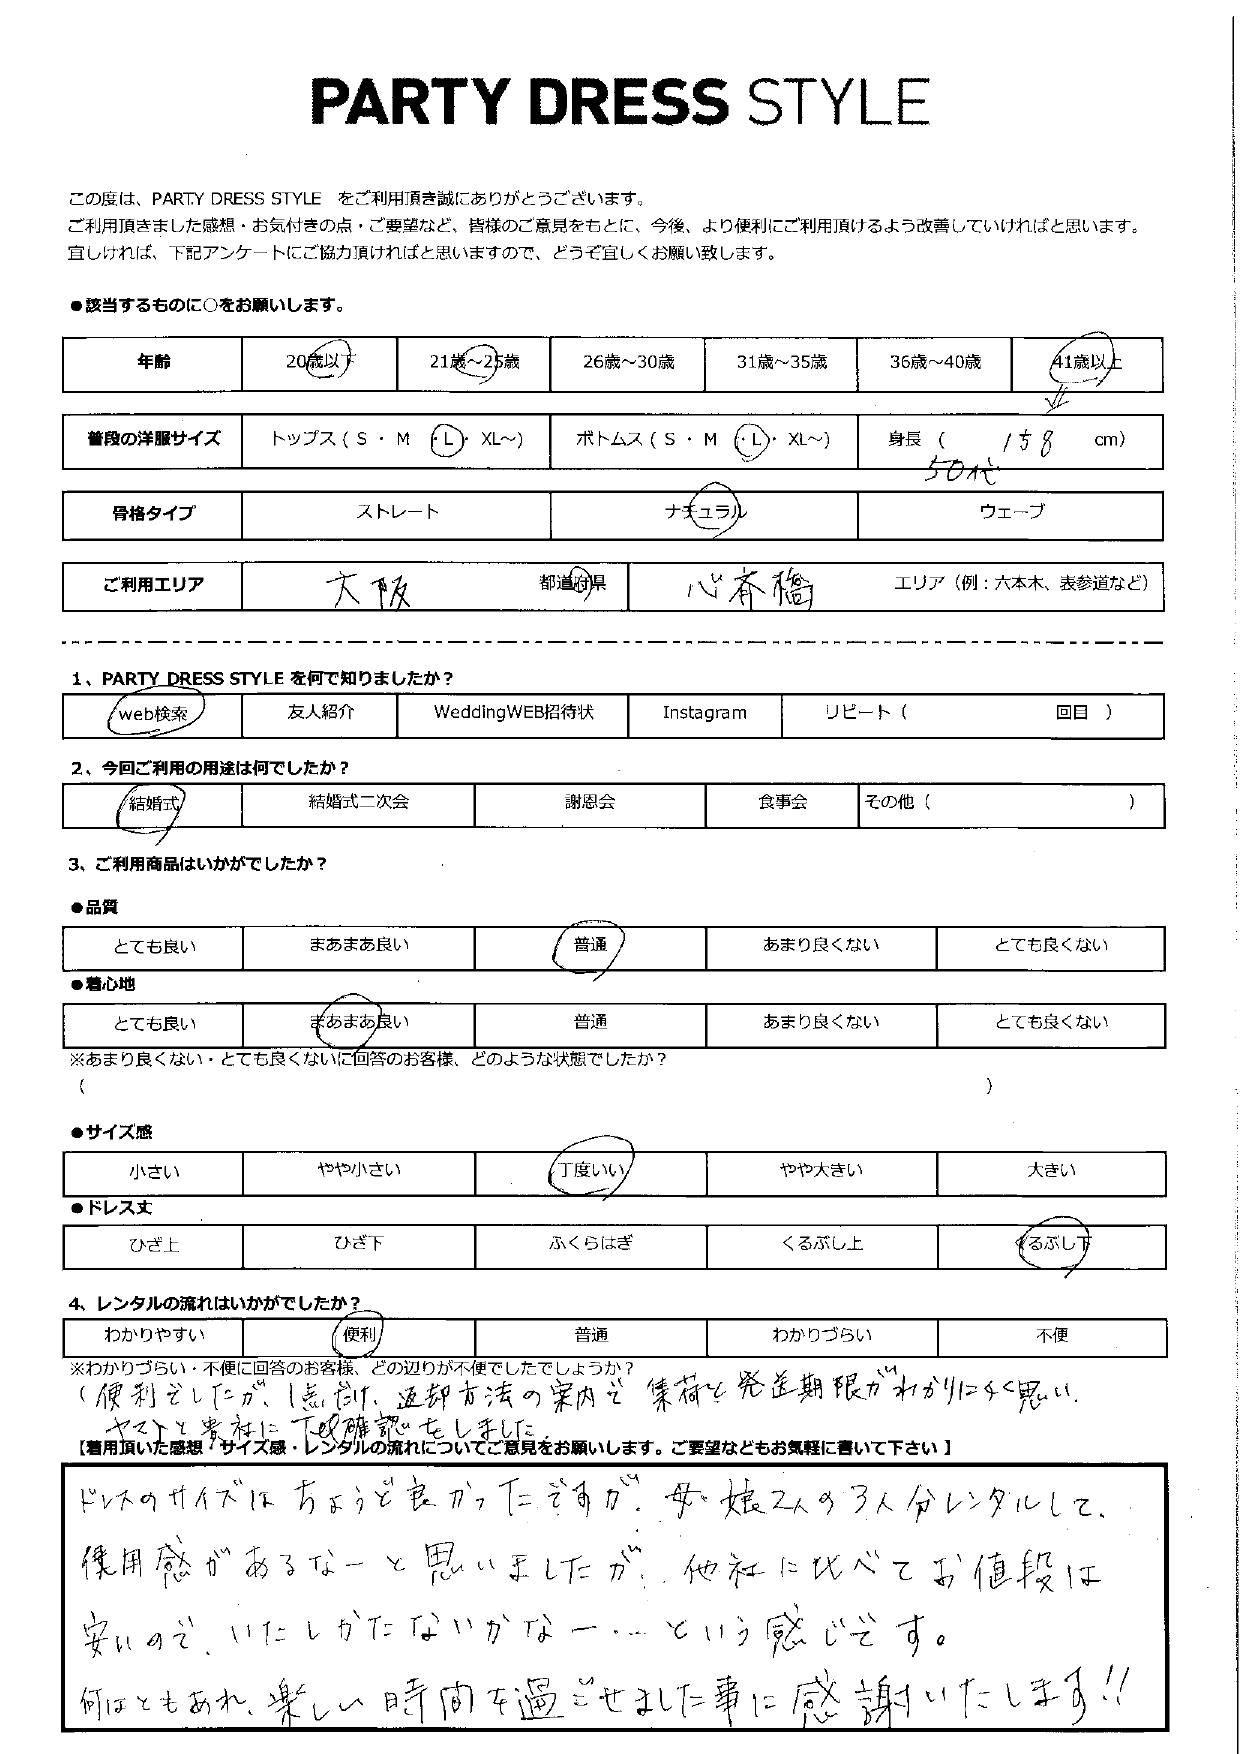 PARTY DRESS STYLE
この度は、PARTY DRESS STYLE をご利用頂き誠にありがとうございます。
ご利用頂きました感想・お気付きの点・ご要望など、皆様のご意見をもとに、今後、より便利にご利用頂けるよう改善していければと思います。
宜しければ、下記アンケートにご協力頂ければと思いますので、どうぞ宜しくお願い致します。
●該当するものに○をお願いします。
年齢 20歳以下 21歳～25歳 26歳～30歳 31歳～35歳 36歳～40歳 41歳以上
普段の洋服サイズ トップス ( S ・ M ・L・ XL～) ボトムス ( S ・ M ・L・ XL～) 身長 ( 158 cm)
50代
骨格タイプ ストレート ナチュラル ウェーブ
ご利用エリア 大阪 都道府県 心斎橋 エリア（例：六本木、表参道など）
1、PARTY DRESS STYLE を何で知りましたか？
web検索 友人紹介 WeddingWEB招待状 Instagram リピート（ 回目 ）
2、今回ご利用の用途は何でしたか？
結婚式 結婚式二次会 謝恩会 食事会 その他（ ）
3、ご利用商品はいかがでしたか？
●品質
とても良い まあまあ良い 普通 あまり良くない とても良くない
●着心地
とても良い まあまあ良い 普通 あまり良くない とても良くない
※あまり良くない・とても良くないに回答のお客様、どのような状態でしたか？
（ ）
●サイズ感
小さい やや小さい 丁度いい やや大きい 大きい
●ドレス丈
ひざ上 ひざ下 ふくらはぎ くるぶし上 くるぶし下
4、レンタルの流れはいかがでしたか？
わかりやすい 便利 普通 わかりづらい 不便
※わかりづらい・不便に回答のお客様、どの辺りが不便でしたでしょうか？
（便利でしたが、1点だけ、返却方法の案内で 集荷と発送期限がわかりにくく思い、
ヤマトと貴社にTEL確認をしました。
【着用頂いた感想・サイズ感・レンタルの流れについてご意見をお願いします。ご要望などもお気軽に書いて下さい】
ドレスのサイズはちょうど良かったですが、母・娘2人の3人分レンタルして、
使用感があるなーと思いましたが、他社に比べてお値段は
安いので、いたしかたないかなー…という感じです。
何はともあれ、楽しい時間を過ごせました事に感謝いたします!!